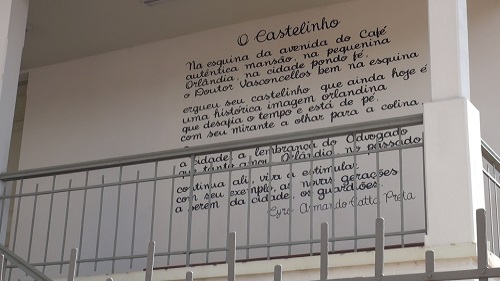 O Castelinho
Na esquina da avenida do Café
autêntica mansão, na pequenina
Orlândia, na cidade pondo fé,
o Doutor Vasconcellos bem na esquina
ergueu seu castelinho que ainda hoje é
uma histórica imagem orlandina
que desafia o tempo e está de pé,
com seu mirante a olhar para a colina.
a cidade, a lembrança do Advogado
que tanto amou Orlândia no passado
continua ali, viva a estimular,
com seu exemplo, as novas gerações
a serem da cidade os guardiões.
Cyro Armando Catta Preta